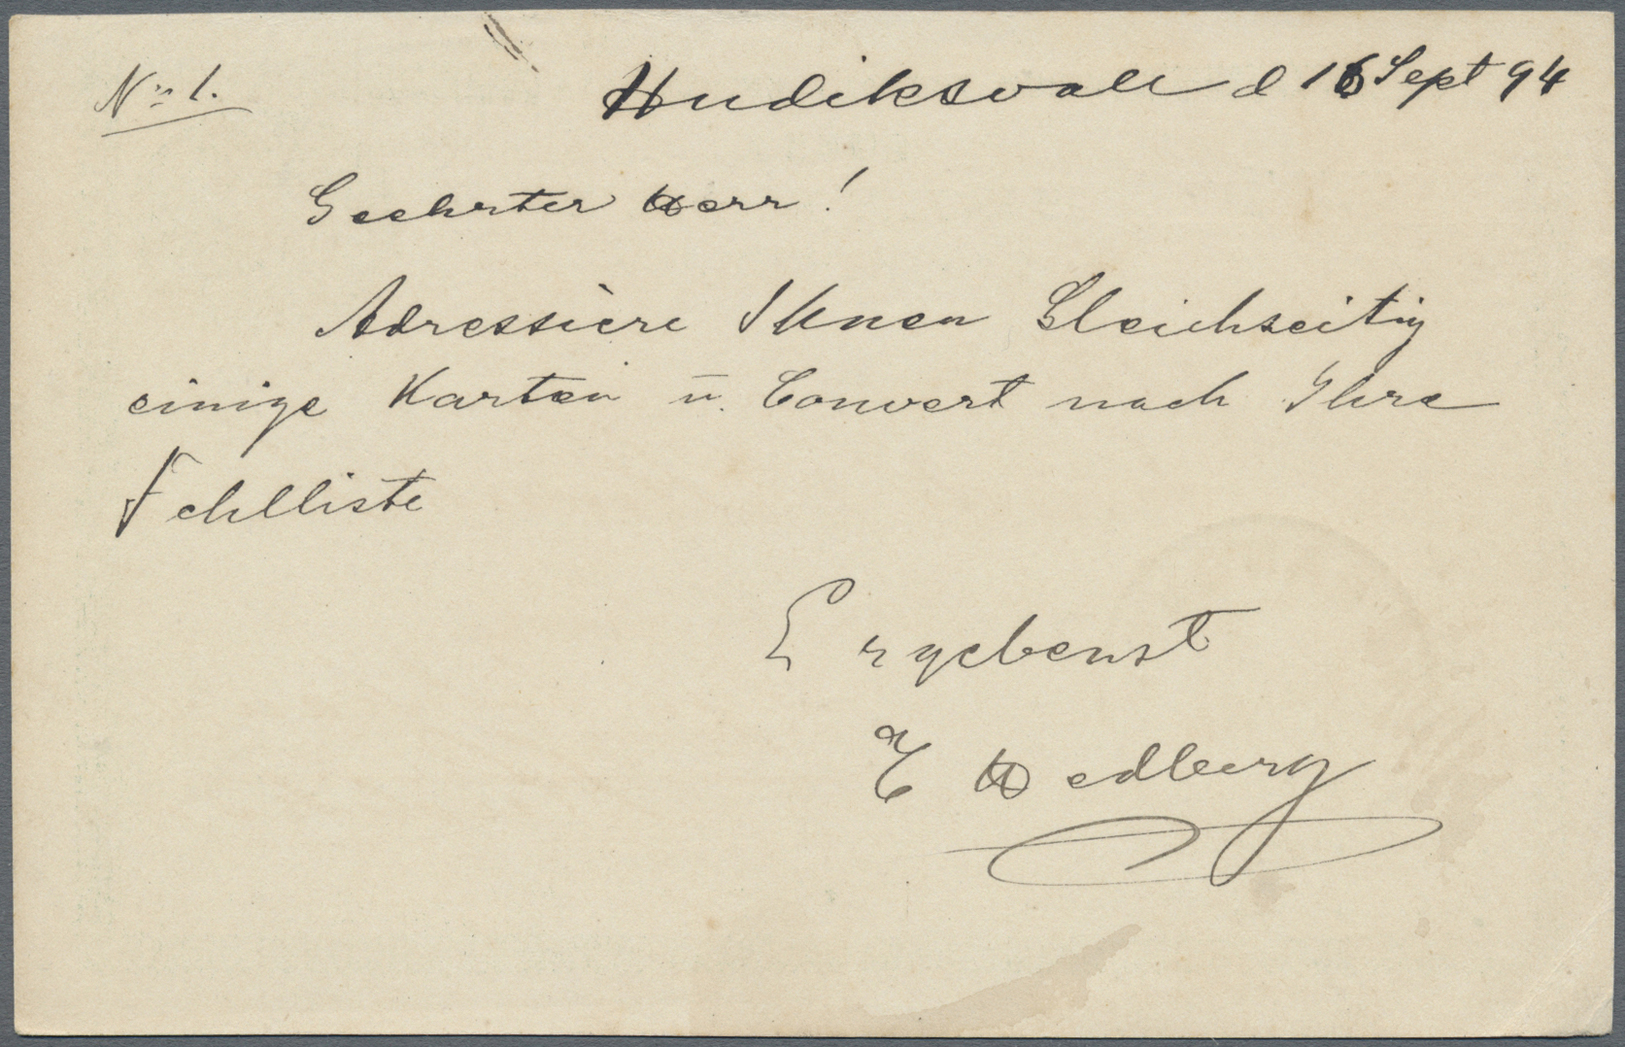 No 1.
Hudiksvall d 16 Sept 94
Geehrter Herr!
Adressiere Ihnen Gleichzeitig
einige Karten u. Convert nach Ihre
Fehlliste
Ergebenst
E Hedberg